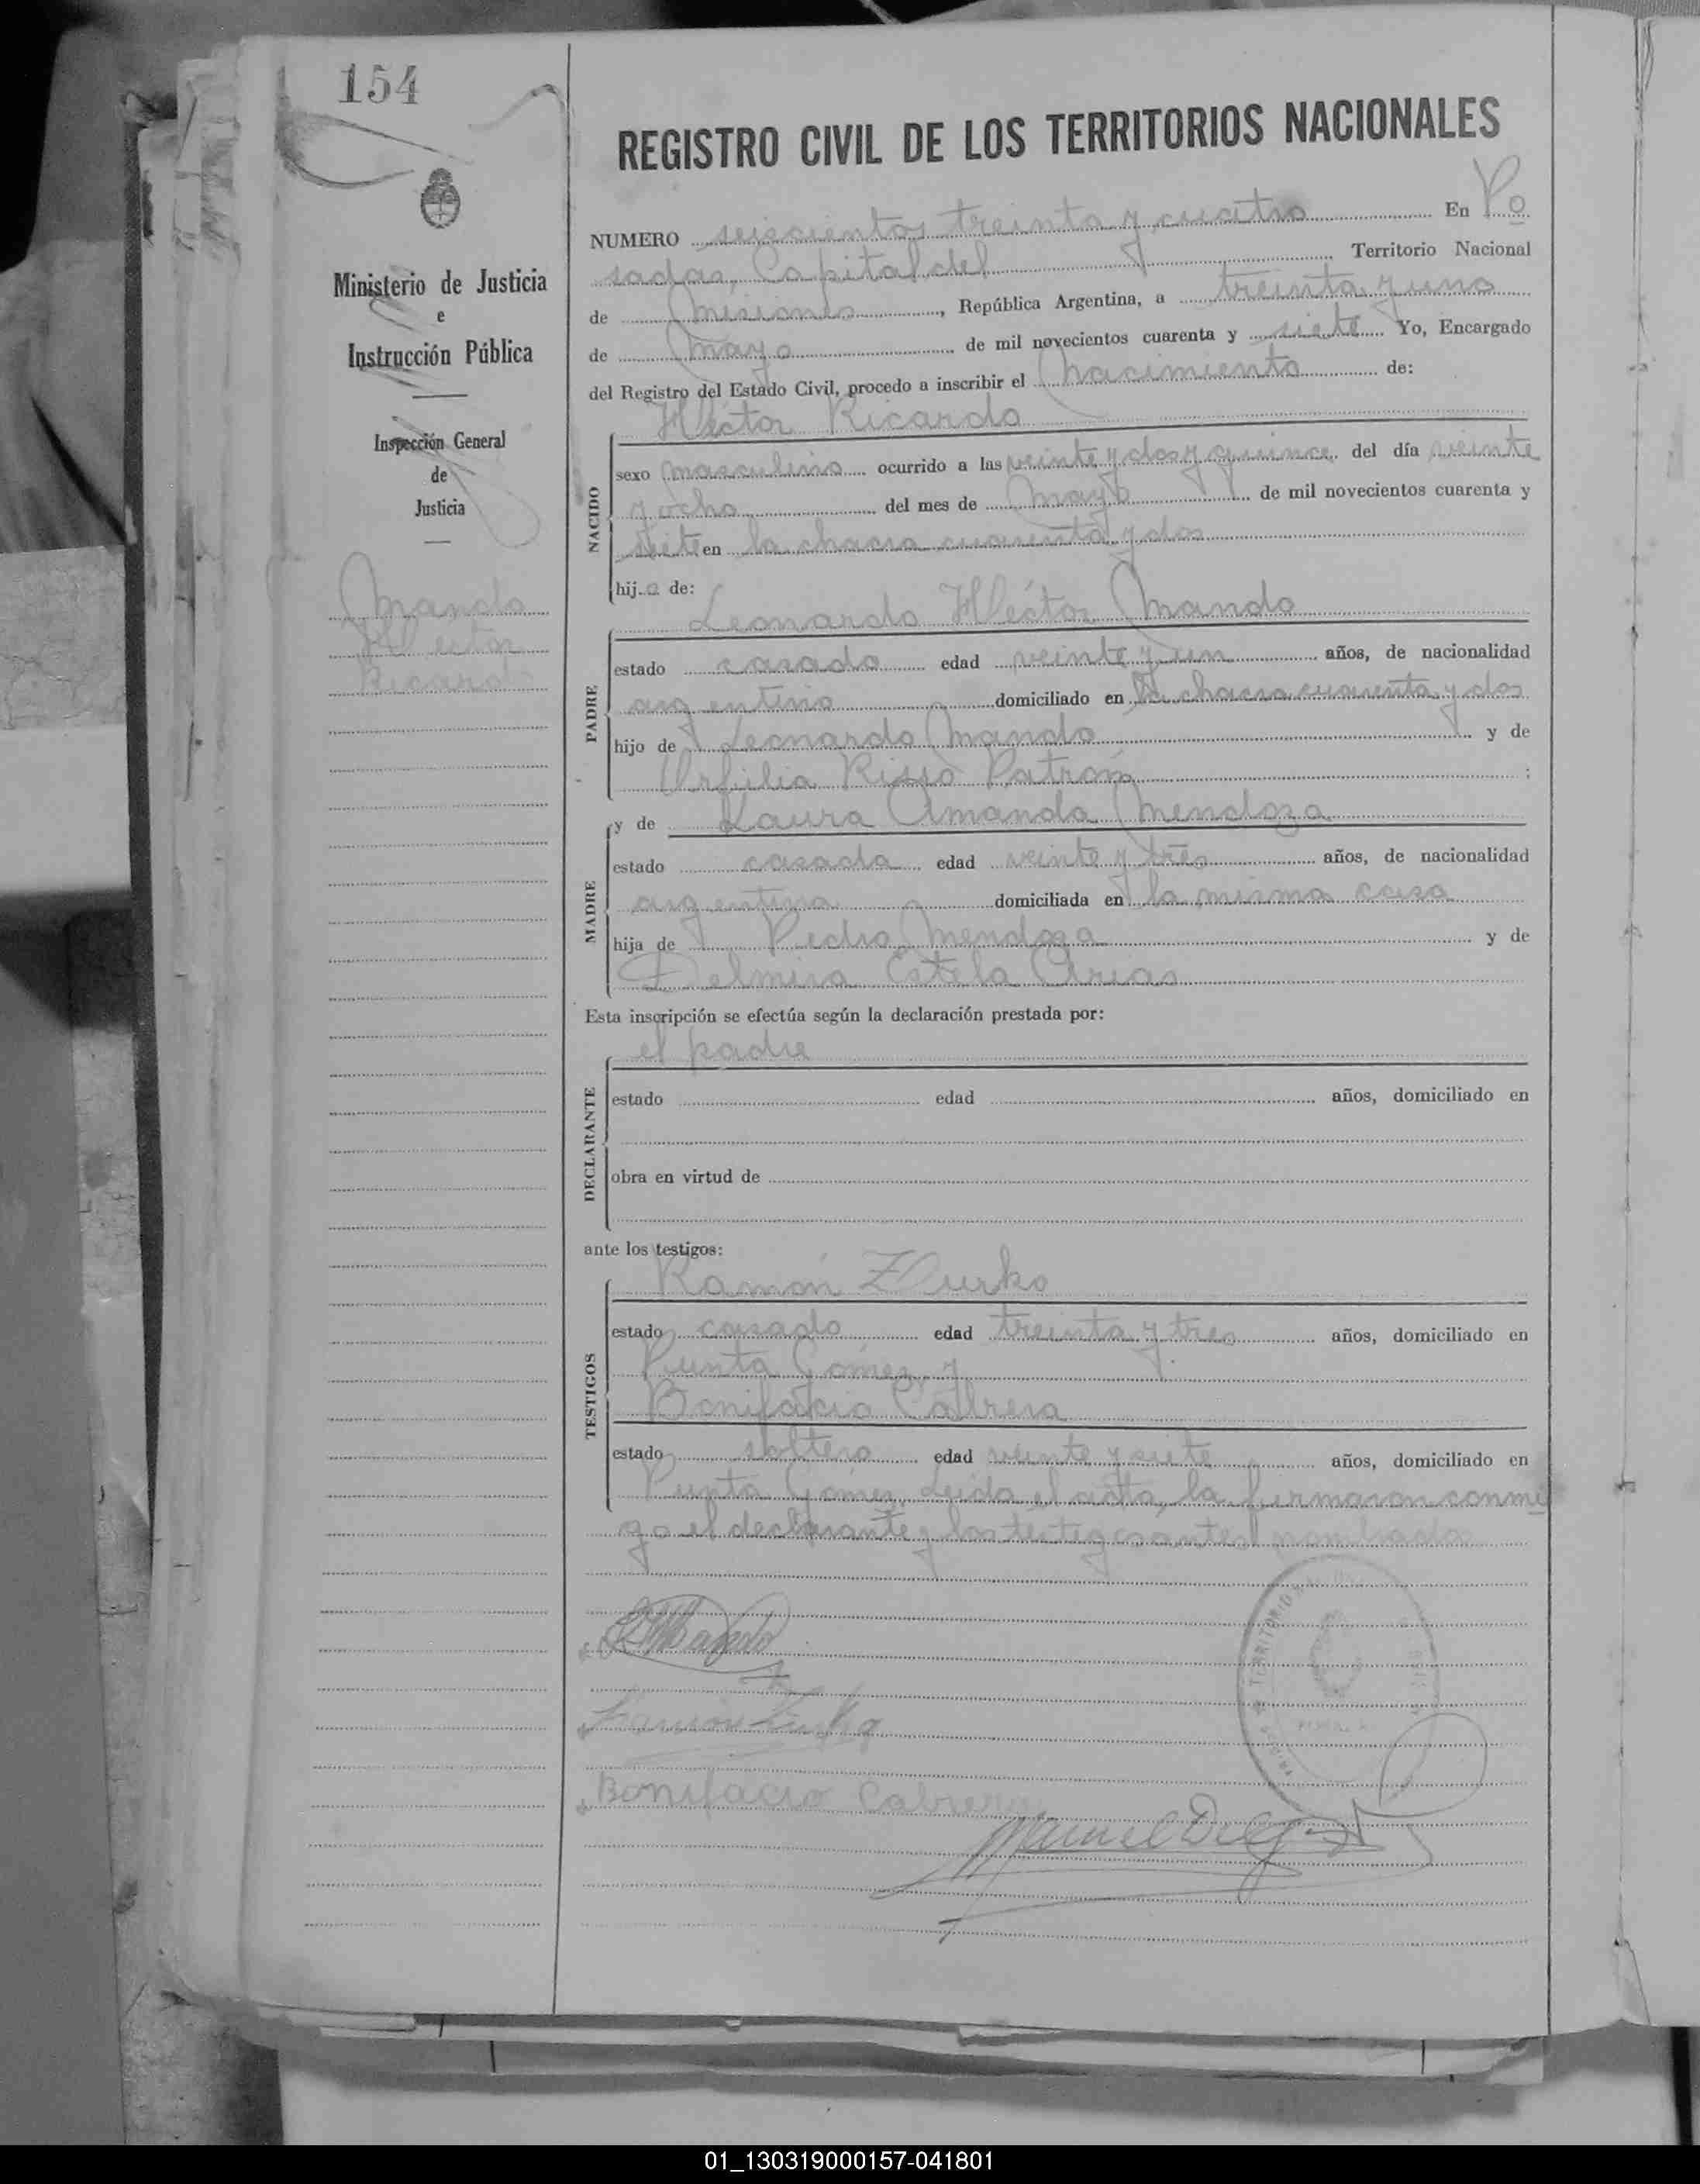 154
REGISTRO CIVIL DE LOS TERRITORIOS NACIONALES
NUMERO seiscientos treinta y cuatro En Po
sadas, Capital del Territorio Nacional
de Misiones, República Argentina, a treinta y uno
de Mayo de mil novecientos cuarenta y siete Yo, Encargado
del Registro del Estado Civil, procedo a inscribir el nacimiento de:
Héctor Ricardo
sexo masculino ocurrido a las veinte y dos y quince del día veinte
y ocho del mes de Mayo de mil novecientos cuarenta y
siete en la chacra cuarenta y dos
hijo de:
Leonardo Héctor Mando
estado casado edad veinte y un años, de nacionalidad
argentino domiciliado en la chacra cuarenta y dos
hijo de Leonardo Mando y de
Urfilia Risso Patrón ;
y de Laura Amanda Mendoza
estado casada edad veinte y tres años, de nacionalidad
argentina domiciliada en la misma casa
hija de Pedro Mendoza y de
Delmira Estela Arias
Esta inscripción se efectúa según la declaración prestada por:
el padre
estado edad años, domiciliado en
obra en virtud de
ante los testigos:
Ramón Zurko
estado casado edad treinta y tres años, domiciliado en
Punta Gómez y
Bonifacio Cabrera
estado soltero edad veinte y siete años, domiciliado en
Punta Gómez. Leída el acta, la firmaron conmi
go el declarante y los testigos antes nombrados
NACIDO
PADRE
MADRE
DECLARANTE
TESTIGOS
Ministerio de Justicia
e
Instrucción Pública
Inspección General
de
Justicia
Mando
Héctor
Ricardo
Bonifacio Cabrera
01_130319000157-041801